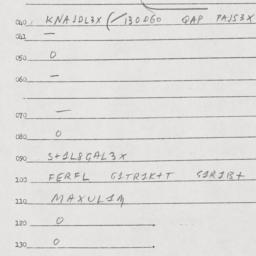 040. KNAJDL3X (/130DGO QAP PAJS3X
041 —
050 O
060 —
070 —
080 O
090 S+1L8GAL3X
100 FERFL G1TR1K+T S1R1B+
110 MAXUL1M
120 O
130 O